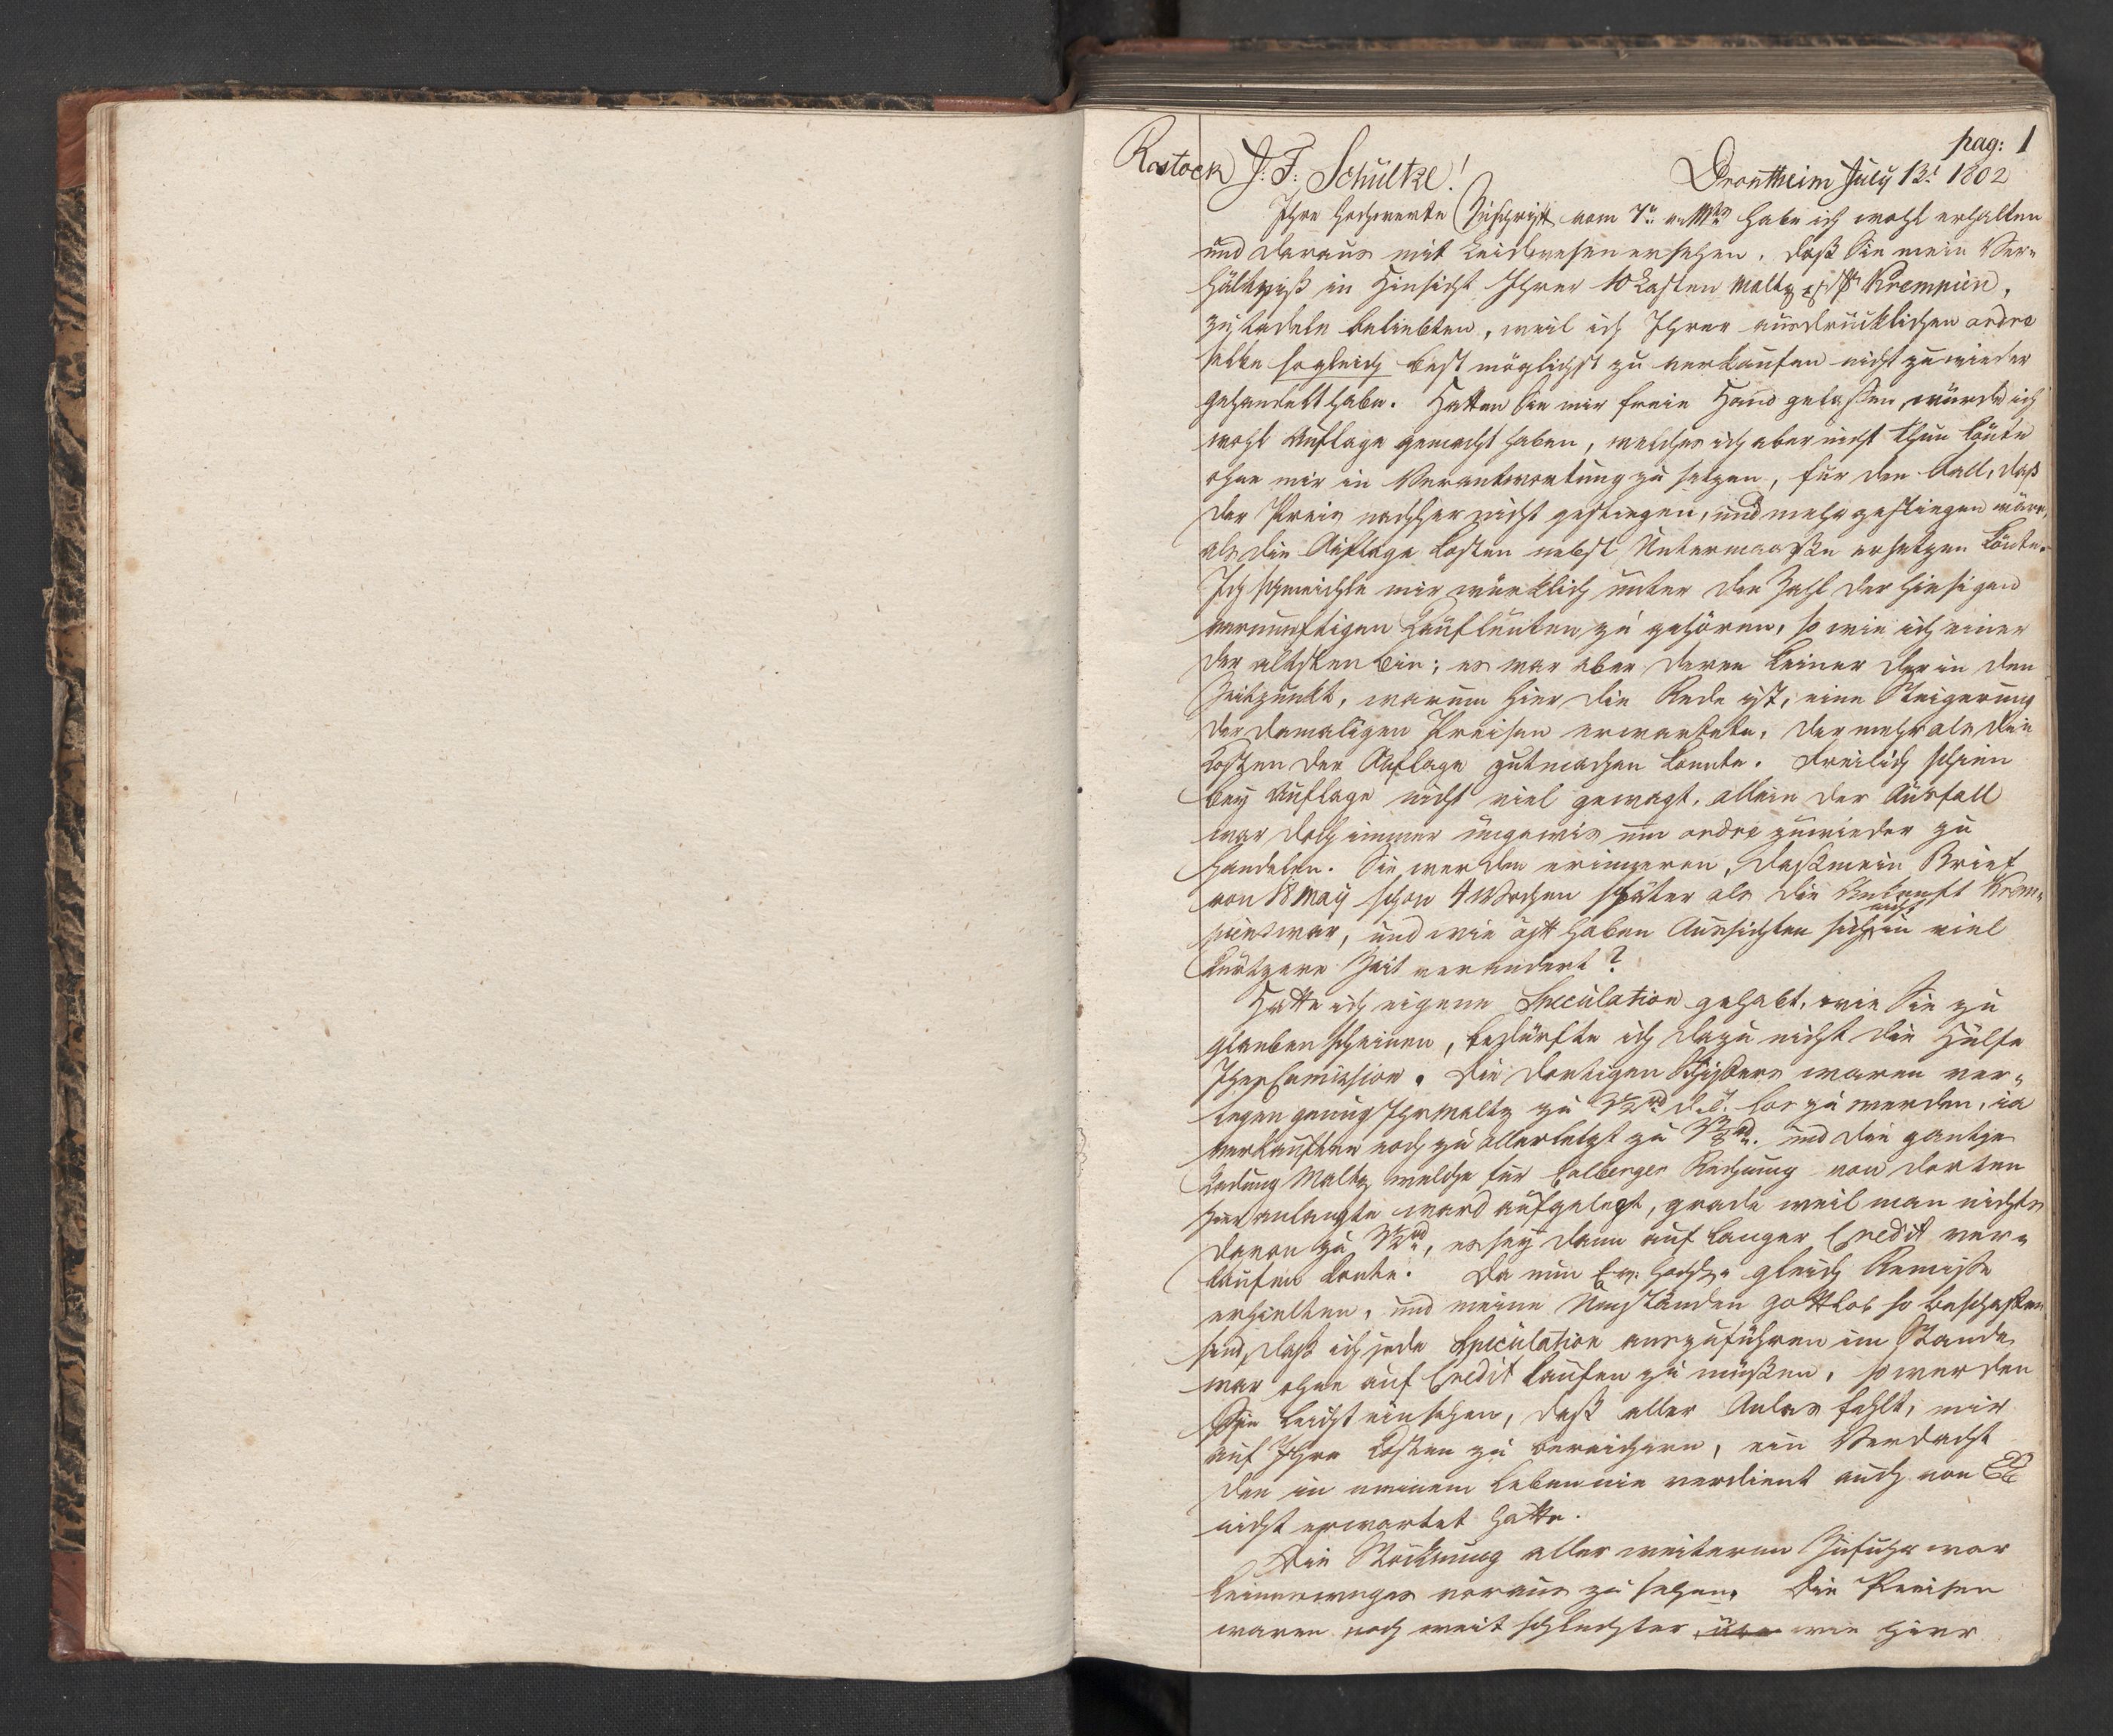 pag: 1
Rostock J: F: Schültze!
Drontheim July 13t 1802
Ihre hochwerte Zuschrift vom 7n habe ich wohl erhalten
und daraus mit Leidwesen ersehen, daß Sie mein Ver=
hältniß in Hinsicht Ihrer 10 Lasten Maltz Krempien,
zu tadeln beliebten, weil ich Ihrer ausdrücklichen ordre
selbe sogleich best möglichst zu verkaufen nicht zuwieder
gehandelt habe. Hatten Sie mir freie Hand gelaßen, würde ich
wohl Auflage gemacht haben, welches ich aber nicht thun konte
ohne mir in Verantwortung zu setzen, für den Fall, daß
der Preis nachher nicht gestiegen, und mehr gestiegen wäre,
als die Auflage Kosten nebst Untermaaße ersetzen könte.
Ich schmeichle mir würklich unter der Zahl der hiesigen
vernunftigen Kaufleuten zu gehören, so wie ich einer
der ältsten bin; es war aber deren keiner der in den
Zeitpunkt, warum hier die Rede ist, eine Steigerung
der damaligen Preisen erwartete, der mehr als die
Kosten der Auflage gutmachen konnte. Freilich schien
bey Auflage nicht viel gewagt, allein der Ausfall
war doch immer ungewis um ordre zuwieder zu
handelen. Sie werden erinneren, daß mein Brief
von 18 May schon 4 Wochen später als die Ankunft Krem=
piens war, und wie oft haben Aussichten sich nicht in viel
kürtzere Zeit verandert?
Hatte ich eigene Speculation gehabt, wie Sie zu
glauben scheinen, bedürfte ich dazu nicht die Hülfe
Ihrer Comission. Die dortigen Schiffers waren ver=
legen genug Ihr Maltz zu los zu werden, ia
verkauften noch zu allerletzt zu und die gantze
Ladung Maltz welche für Colberger Rechnung von dorten
hier anlangte ward aufgelegt, grade weil man nichts
davon zu es sey dann auf langer Credit ver=
kaufen konte. Da nun gleich Remisse
erhielten, und meine Umständen gottlob so beschaffen
sind, daß ich jede Speculation auszuführen im Stande
war ohne auf Credit kaufen zu müßen, so werden
Sie leicht einsehen, daß aller Anlas fehlt, mir
auf Ihre Kosten zu bereichern, ein Verdacht
den in meinem Leben nie verdient auch von
nicht erwartet hatte.
Die Stockung aller weiteren Zufuhr war
keinesweges voraus zu sehen. Die Preisen
waren noch weit schlechter wie hier